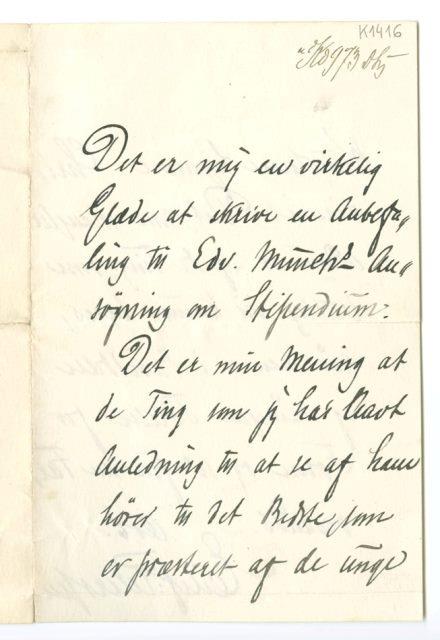 K1416
973
Det er mig en virkelig
Glæde at skrive en Anbefa„
ling til Edv. Munchs An„
søgning om Stipendium.
Det er min Mening at
de Ting som jeg har havt
Anledning til at se af ham
hörer til det Bedste, som
er præsteret af de unge